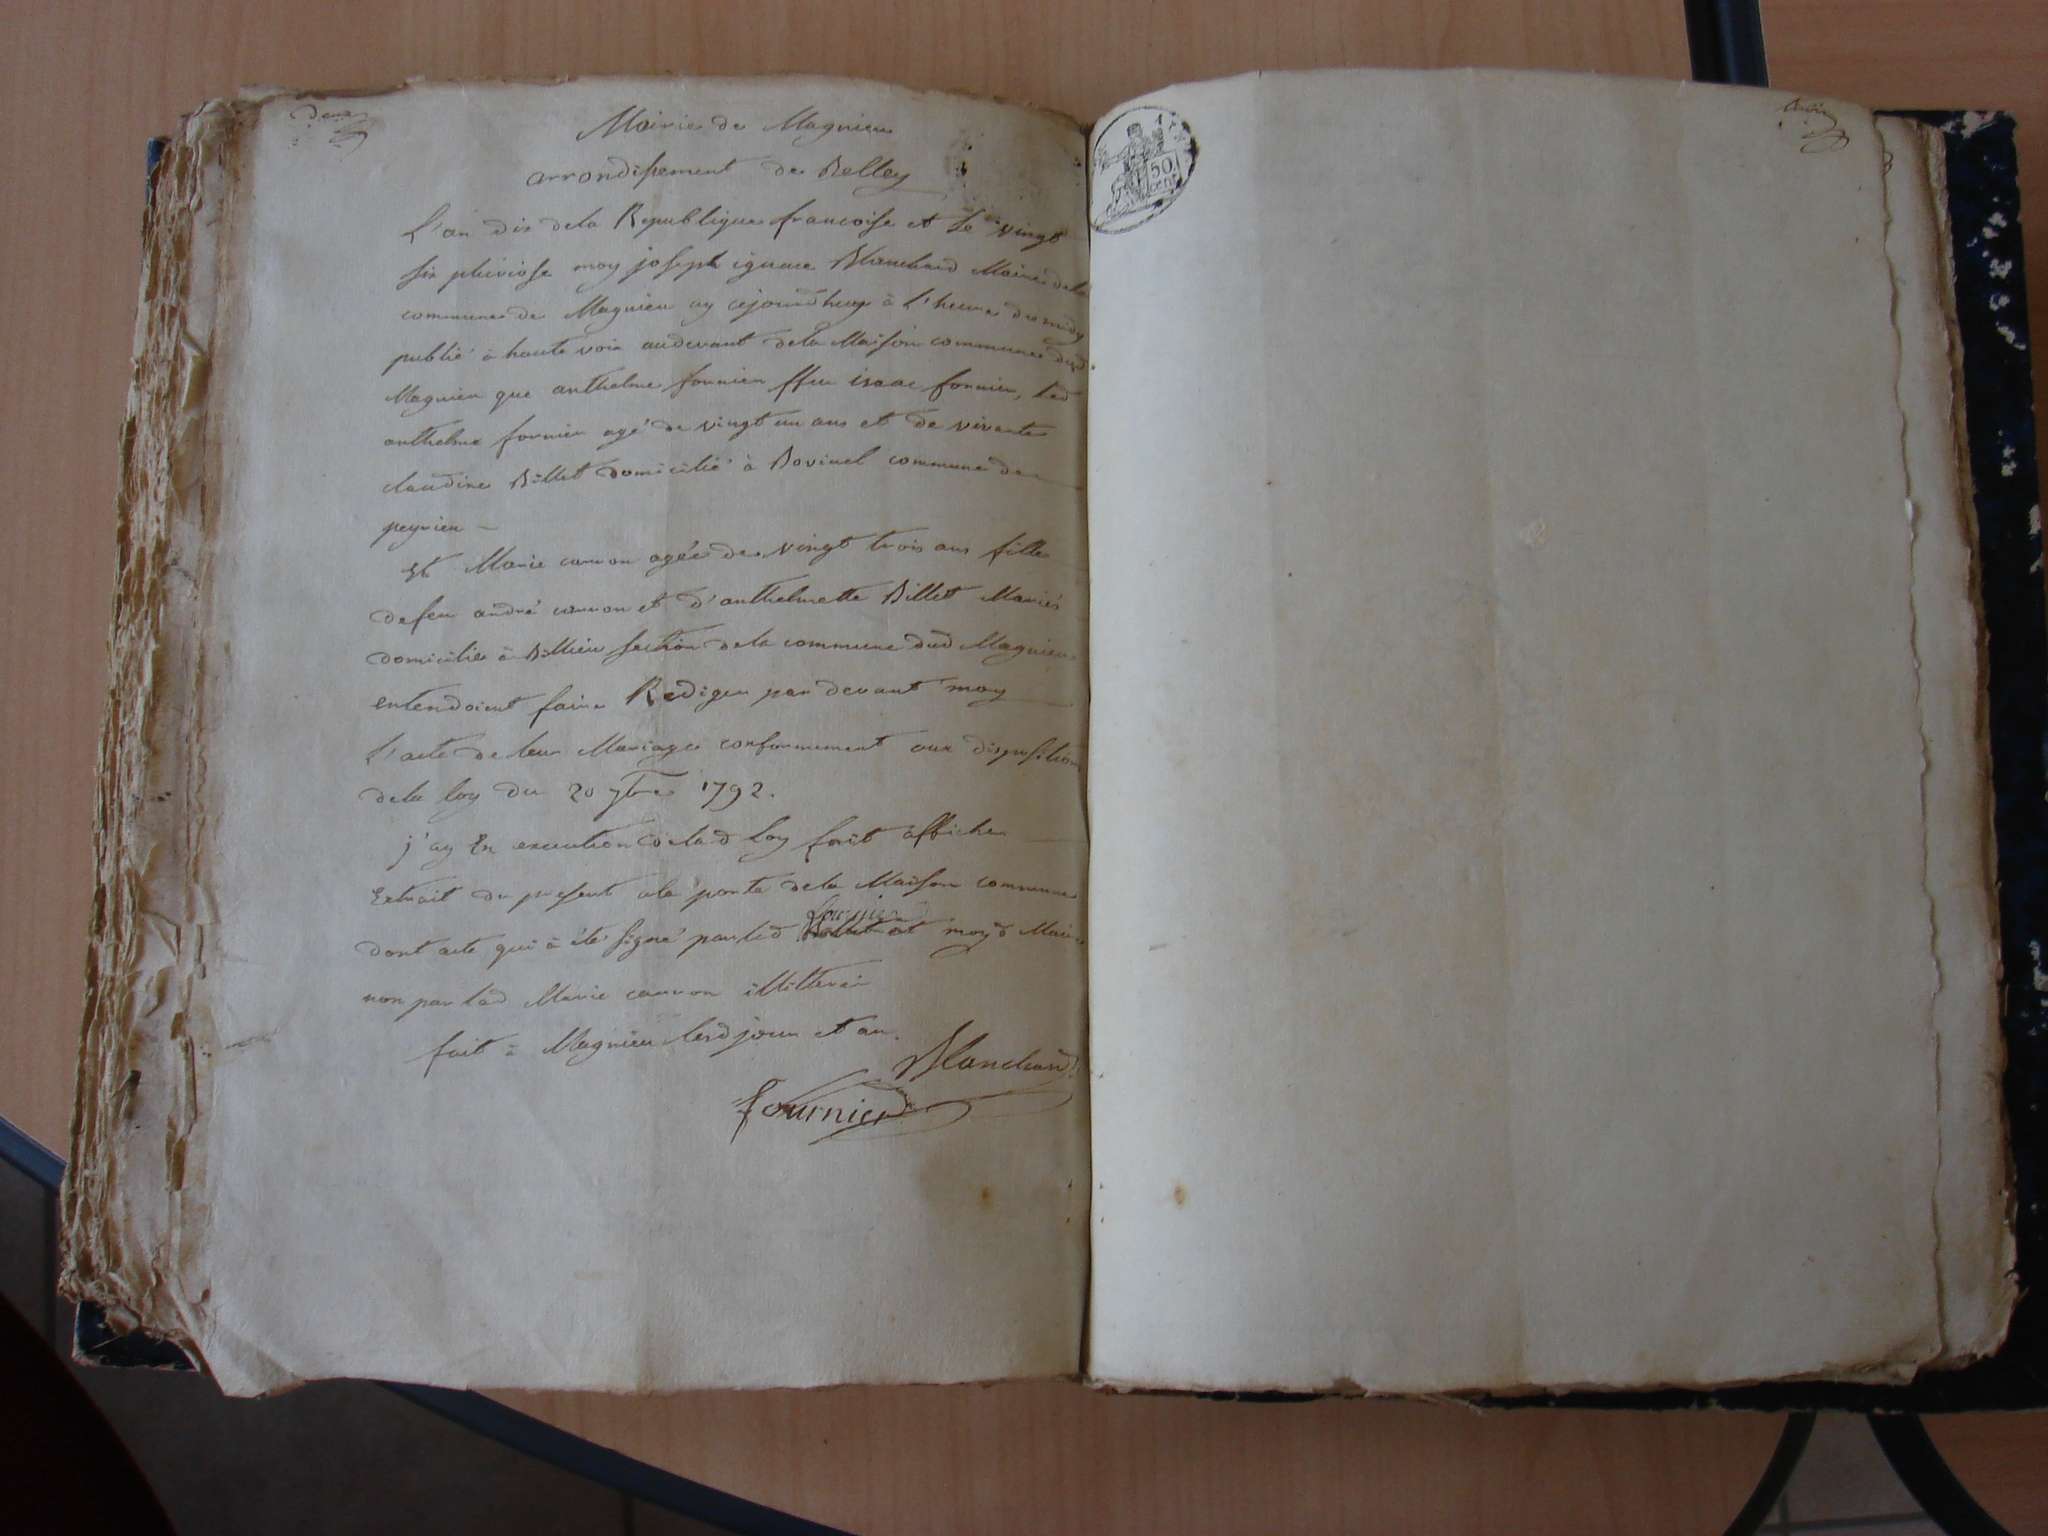 deux
Mairie de Magnieu
arrondissement de Belley
L'an dix dela Republique francoise et le vingt
six pluviose moy joseph ignace Blanchard Maire dela
commune de Magnieu ay cejourdhuy à l'heure de midy
publié à haute voix audevant dela Maison commune dud
Magnieu que anthelme fournier ffeu isaac fornier, led
anthelme fornier agé de vingt un ans et de vivante
claudine Billet domicilié à Bovinel commune de
peyrieu
Et Marie carron agée de vingt trois ans fille
defeu andré carron et d'anthelmette Billet Mariés
domicilié à Billieu section dela commune dud Magnieu
entendoient faire Rediger par devant moy
l'acte de leur Mariage conformement aux dispositions
dela loy du 20 7bre 1792.
j'ay En execution de lad Loy fait afficher
Extrait du present ala porte dela Maison commune
fournier
dont acte qui à été signé par led Billet et moyd Maire
non par lad Marie carron illitteré
fait à Magnieu lesd jour et an.
Blanchard
fournier
50
cent
trois